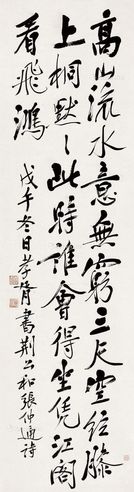 高山流水意無窮三尺空弦膝
上桐默〻此時誰會得坐凭江閣
看飛鴻
戊午冬日孝胥書荆公和張仲通詩